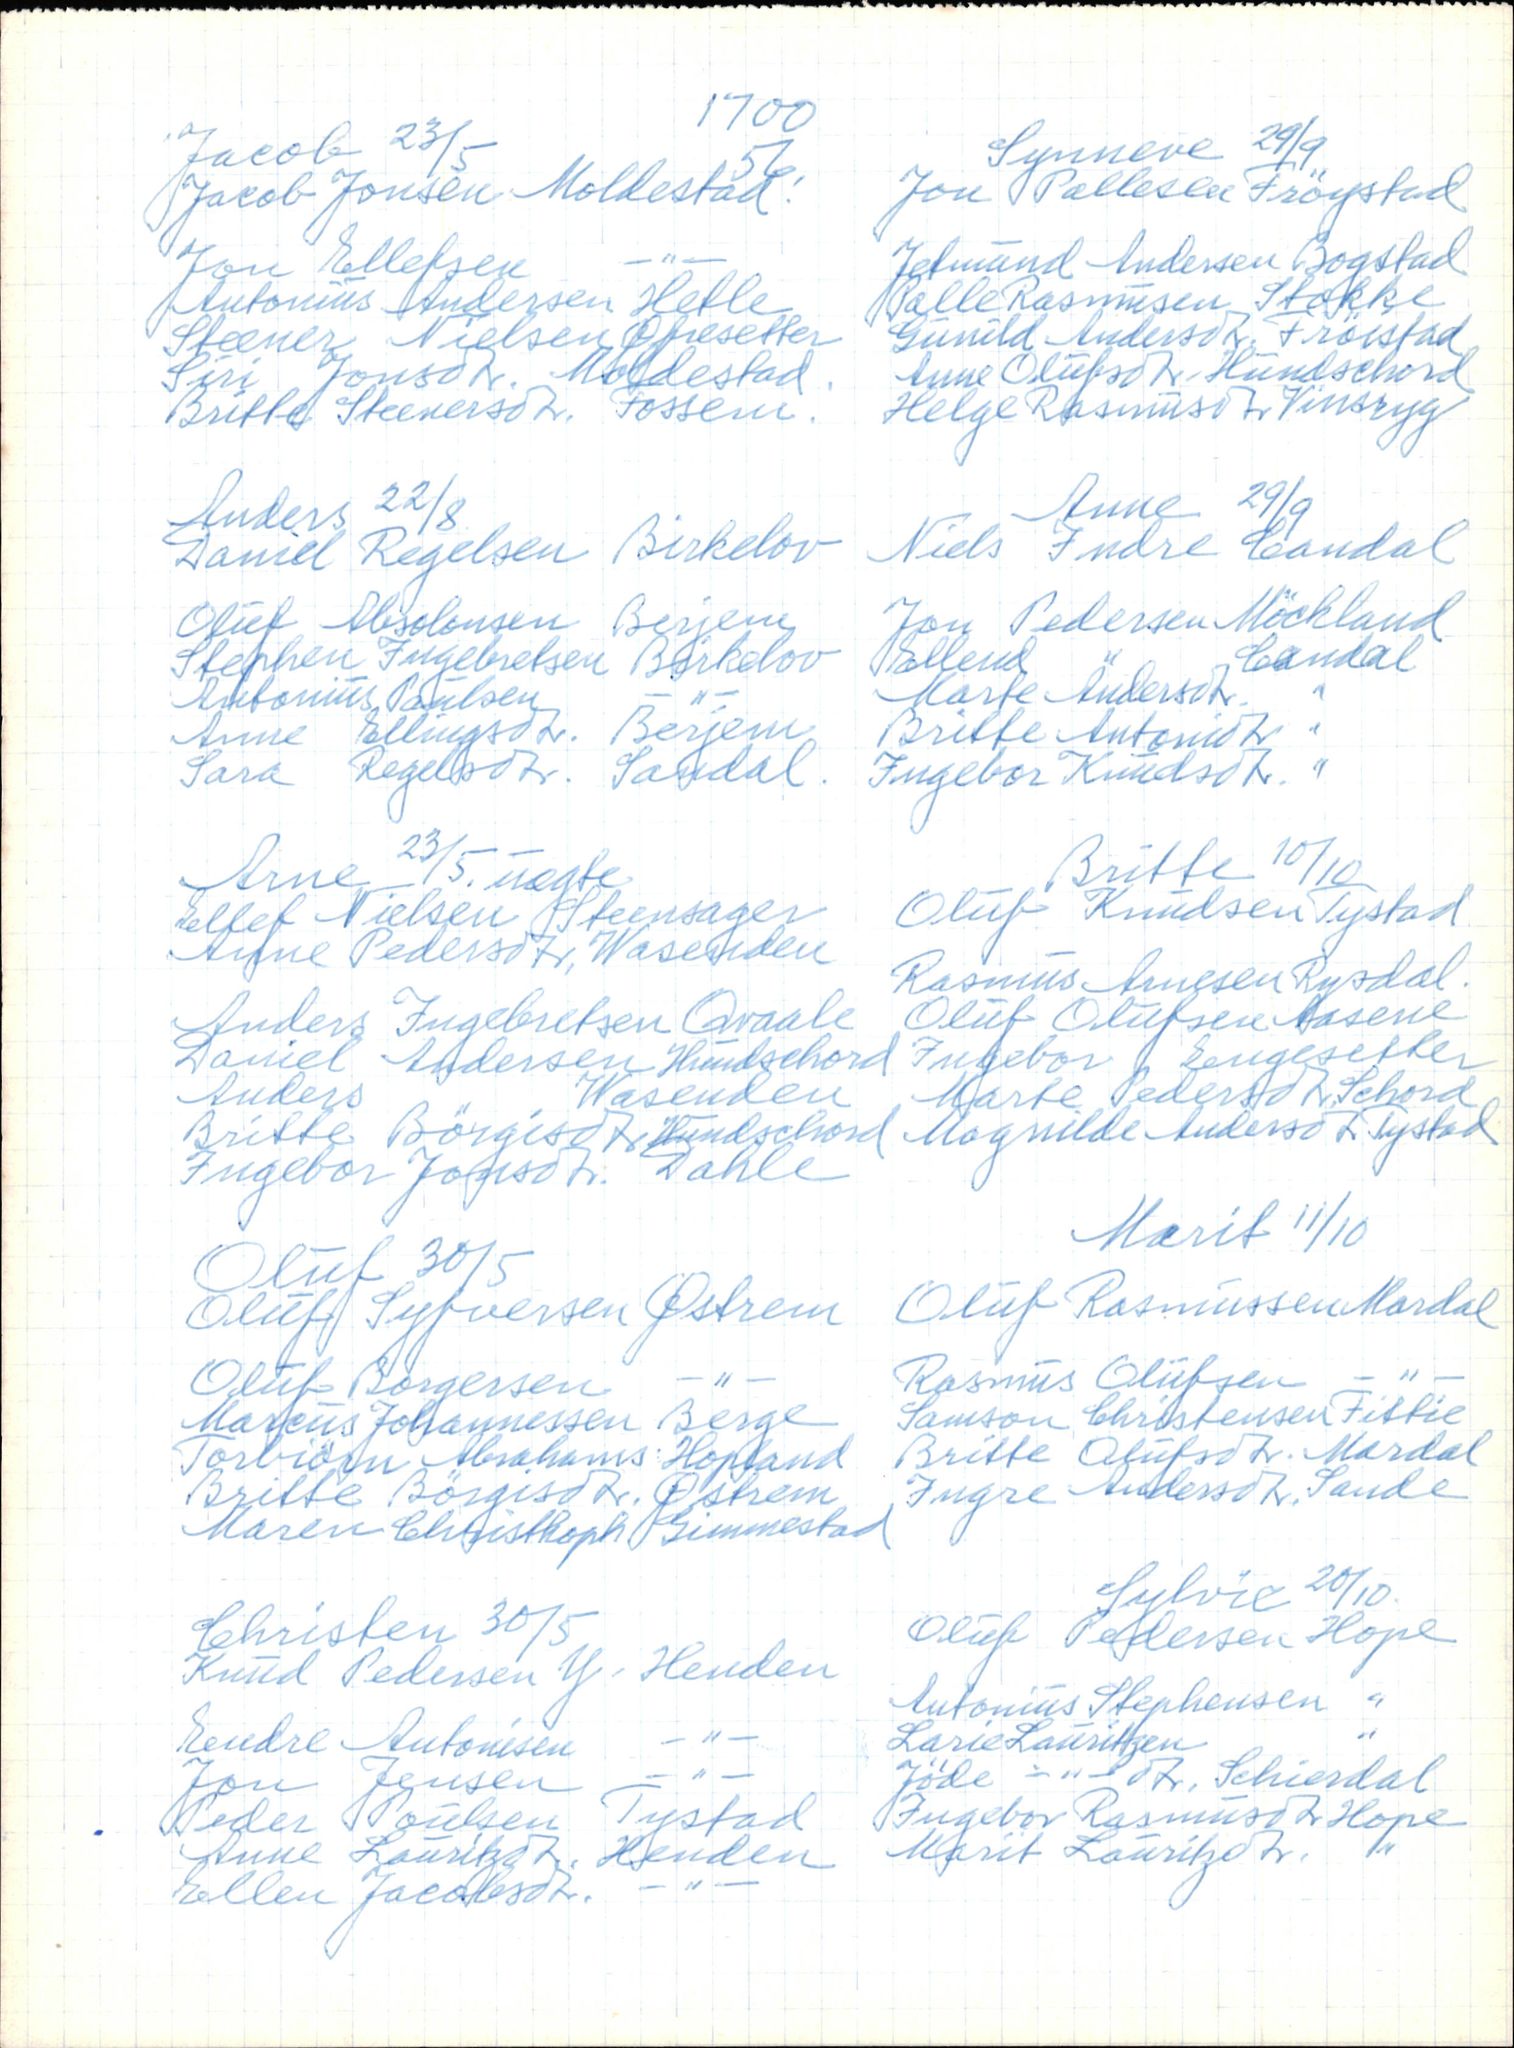 1700
57
Jacob 23/5
Jacob Jonsen Moldestad.
Jon Ellefsen —"—
Antonius Andersen Hetle
Steener Nielsen Øfresetter
Siri Jonsdtr. Moldestad.
Britte Steenersdtr. Fossem.
Anders 22/8
Daniel Regelsen Birkelov
Oluf Absolonsen Berjem
Stephen Ingebretsen Birkelov
Antonius Paulsen —"—
Anne Ellingsdtr. Berjem
Sara Regelsdtr. Sandal.
Arne 23/5. uægte
Ellef Nielsen Steensager
Anne Pedersdtr, Wasenden
Anders Ingebretsen Qvaale
Daniel Andersen Hundschord
Anders Wasenden
Britte Börgisdtr, Hundschord
Ingebor Jonsdtr. Dahle
Oluf 30/5
Oluf Syfversen Østrem
Oluf Borgersen —"—
Marcus Johannessen Berge
Torbiörn Abrahams: Hopland
Britte Börgisdtr. Østrem
Maren Christhoph Gimmestad
Christen 30/5
Knud Pedersen Y. Henden
Endre Antonisen —"—
Jon Jensen —"—
Peder Poulsen Tystad
Anne Lauritzdtr. Henden
Ellen Jacobsdtr. —"—
Synneve 29/9
Jon Pallesen Fröystad
Jetmund Andersen Bogstad
Palle Rasmusen Stokke
Gunild Andersdtr. Fröistad
Anne Olufsdtr. Hundschord
Helge Rasmusdtr Vinsryg
Anne 29/9
Niels Indre Candal
Jon Pedersen Möckland
Ellend " Candal
Marte Andersdtr. "
Britte Antonidtr "
Ingebor Knudsdtr. "
Britte 10/10
Oluf Knudsen Tystad
Rasmus Arnesen Rysdal.
Oluf Olufsen Aasene
Ingebor Engesetter
Marte Pedersdtr. Schord
Magnilde Andersdtr Tystad
Marit 11/10
Oluf Rasmussen Mardal
Rasmus Olufsen —"—
Samson Christensen Fittie
Britte Olufsdtr. Mardal
Ingre Andersdtr. Sande
Sylvie 20/10.
Oluf Pedersen Hope
Antonius Stephensen "
Larie Lauritzen "
Jöde —"— dtr. Schierdal
Ingebor Rasmusdtr Hope
Marit Lauritzdtr. "